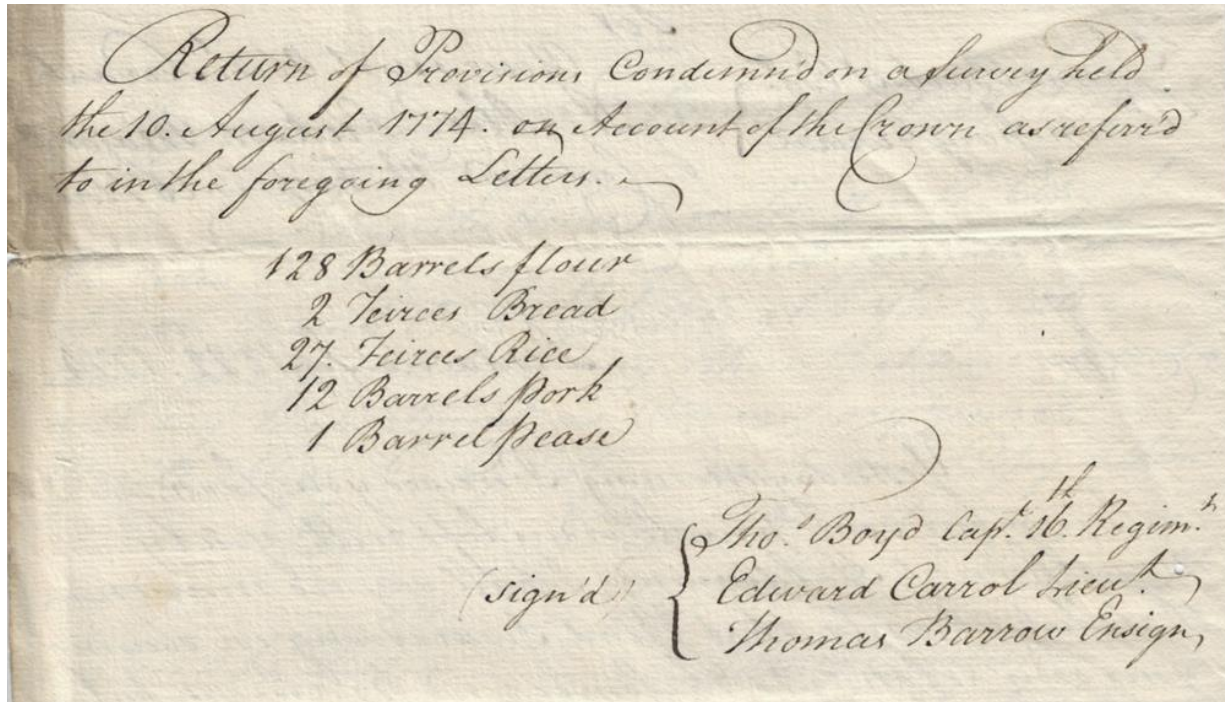 Return of Provisions Condemn'd on a Survey held
the 10. August 1774. on Account of the Crown as referr'd
to in the foregoing Letters.
128 Barrels flour
2 Teirces Bread
27. Teirces Rice
12 Barrels Pork
1 Barrel Pease
Thos. Boyd Capt. 16th. Regimt.
(sign'd) Edward Carrol Lieut.
Thomas Barrow Ensign